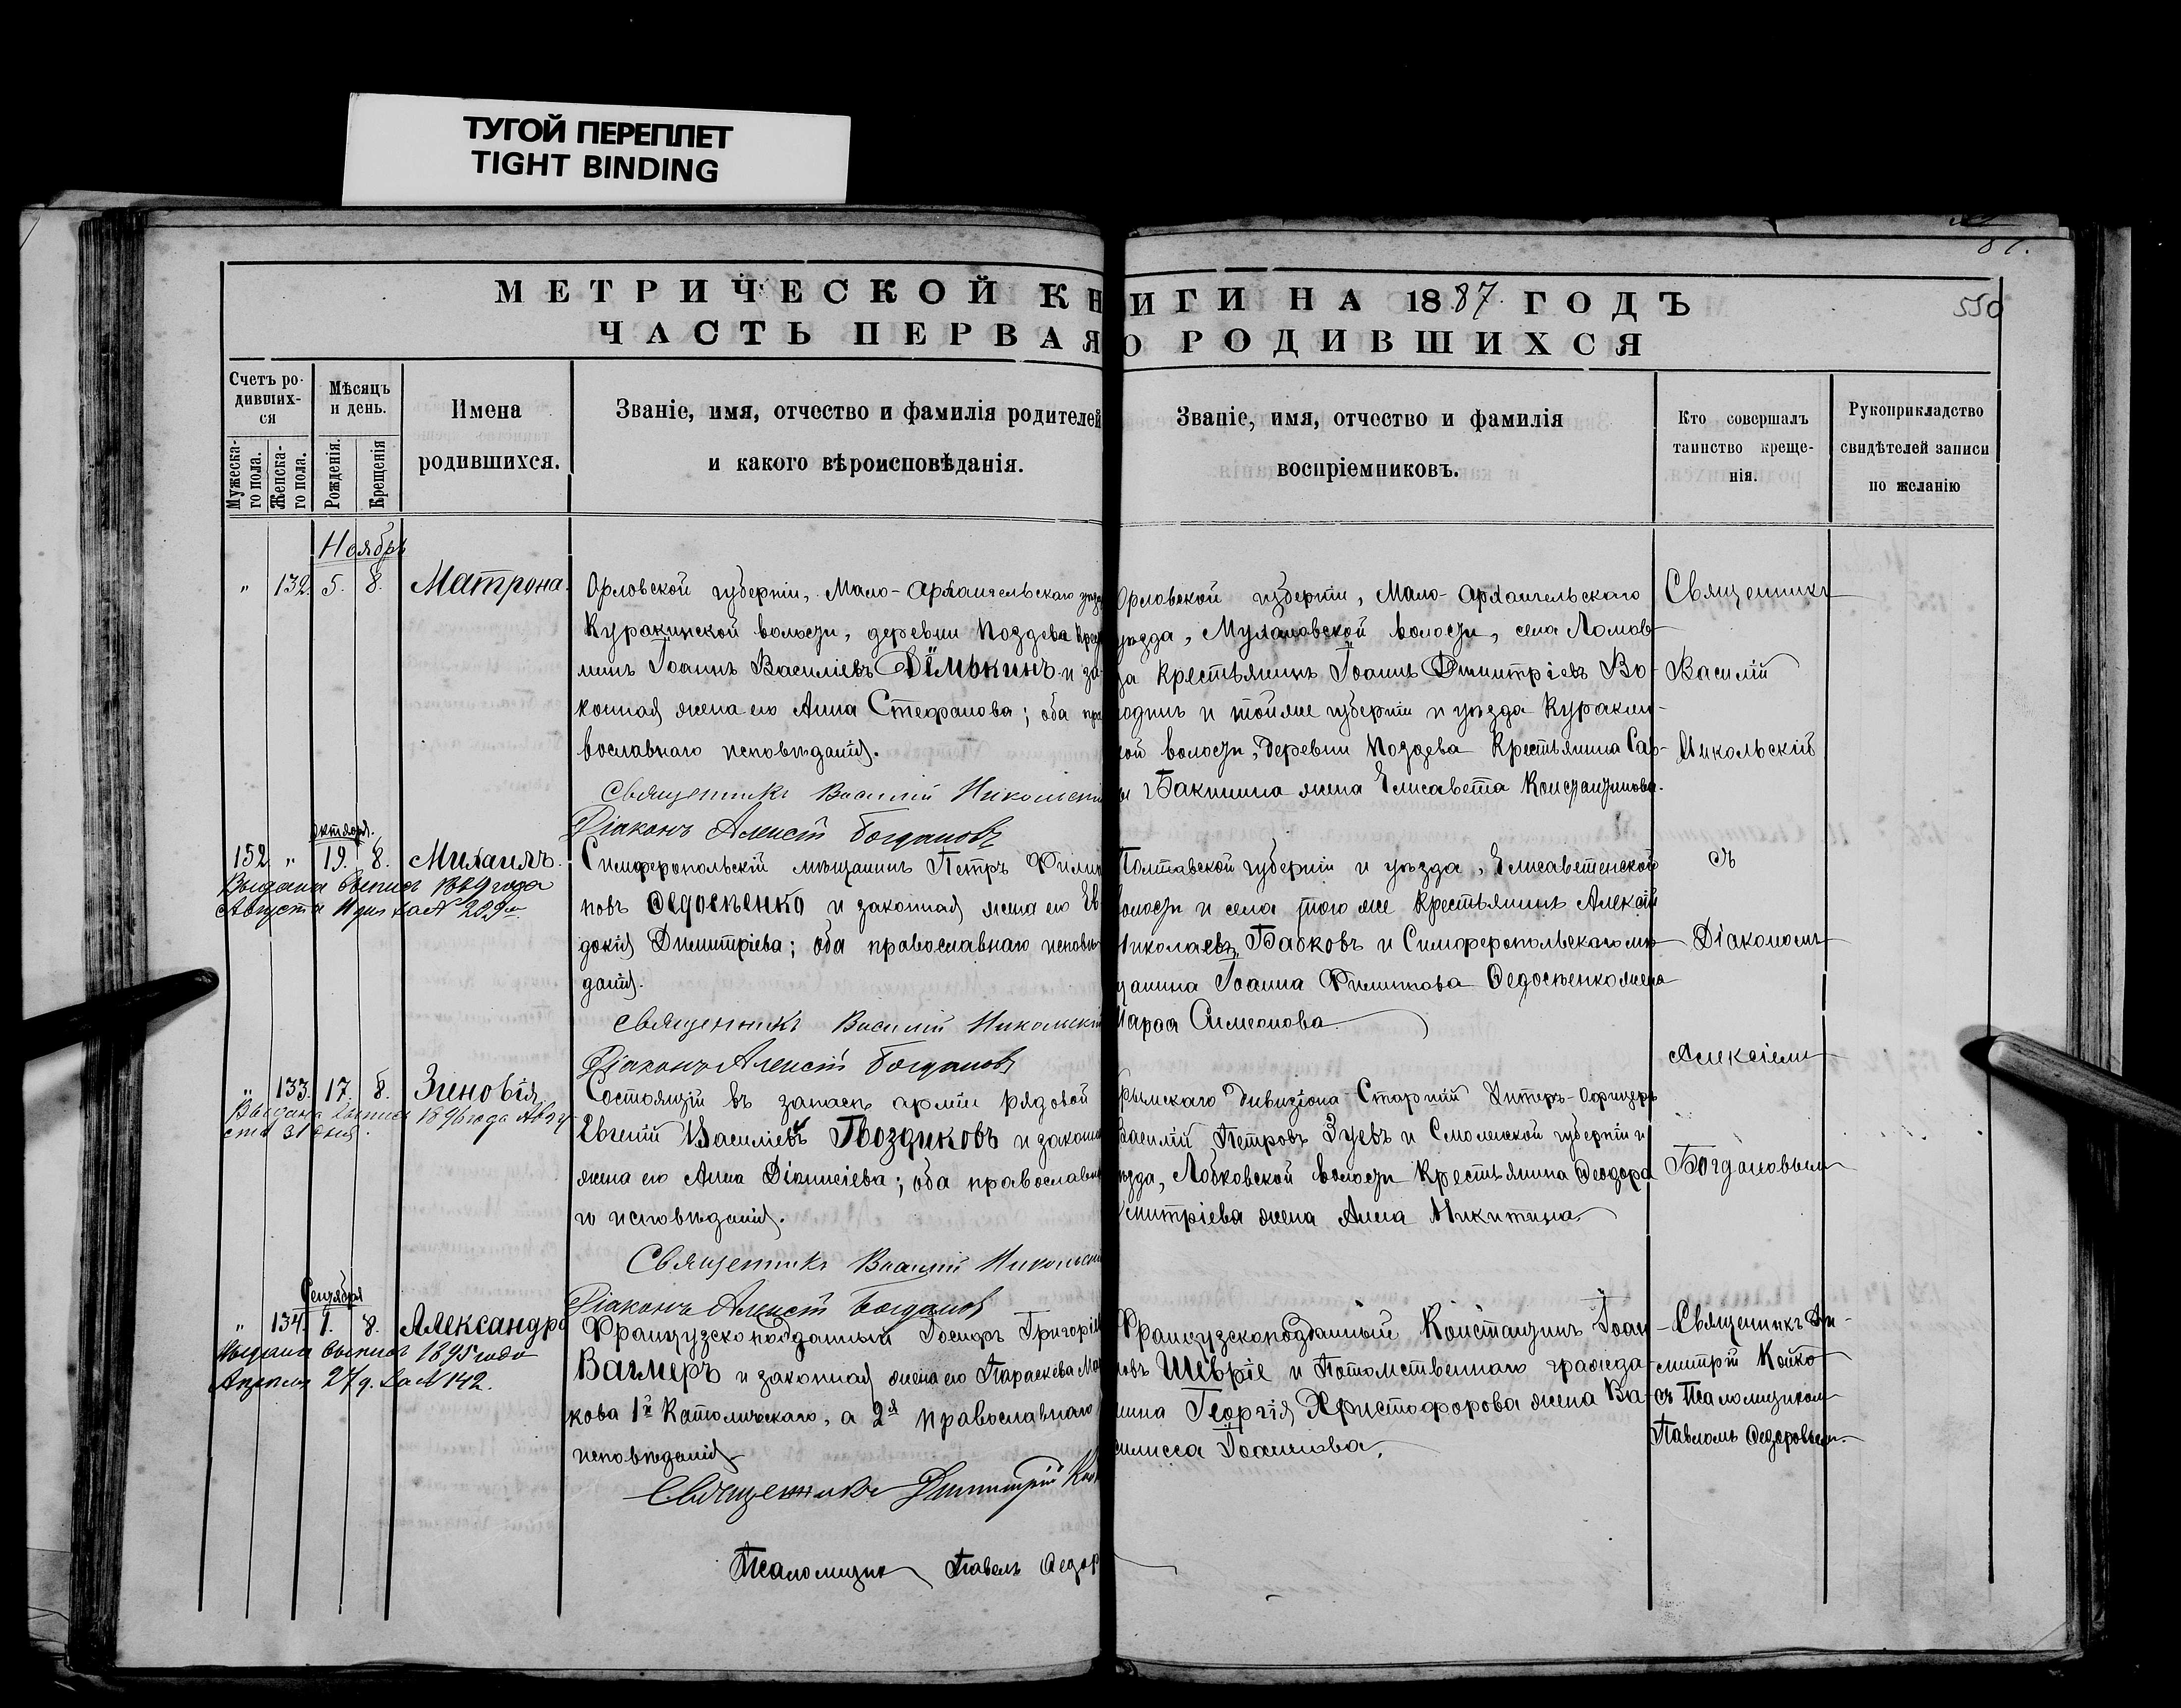 ТУГОЙ ПЕРЕПЛЕТ
TIGHT BINDING
МЕТРИЧЕСКОЙ КНИГИ НА 1887. ГОДЪ
ЧАСТЬ ПЕРВАЯ О РОДИВШИХСЯ
550
Счетъ ро-
дивших-
ся
Мужеска-
го пола.
Женска-
го пола.
Мѣсяцъ
и день.
Рожденія.
Крещенія
Имена
родившихся.
Званіе, имя, отчество и фамилія родителей
и какого вѣроисповѣданія.
Званіе, имя, отчество и фамилія
воспріемниковъ.
Кто совершалъ
таинство креще-
нія.
Рукоприкладство
свидѣтелей записи
по желанію
Ноябрь
„ 132. 5. 8. Матрона.
Орловской губерніи, Мало-Архангельскаго уѣзда
Куракинской волости, деревни Поздева крестья
нинъ Іоаннъ Василіевъ Дёмькинъ и за-
конная жена его Анна Стефанова; оба пра
вославнаго исповѣданія.
Священникъ Василій Никольскій
Діаконъ Алексій Богдановъ
Орловской губерніи, Мало-Архангельскаго
уѣзда, волости, села Ломов
ца крестьянинъ Іоаннъ Димитріевъ Во-
лодинъ и тойже губерніи и уѣзда Куракин-
ской волости, деревни Поздева крестьянина Сав-
вы Бакшина жена Елисавета Константинова.
Священникъ
Василій
Никольскій
Октября.
152 „ 19. 8. Михаилъ.
Выдана выпись 1889 года
Августа 11 дня за № 209
Симферопольскій мѣщанинъ Петръ Филип
повъ Ѳедосѣенко и законная жена его Ев
докія Димитріева; оба православнаго исповѣ-
данія.
Священникъ Василій Никольскій
Діаконъ Алексій Богдановъ
Полтавской губерніи и уѣзда, Елисаветенской
волости и села того же крестьянинъ Алексій
Николаевъ Бабковъ и Симферопольскаго мѣ-
щанина Іоанна Филиппова Ѳедосѣенко жена
Марѳа Симеонова.
съ
Діакономъ
Алексіемъ
Богдановымъ
„ 133. 17. 8. Зиновія.
Выдана выпись 1896 года Авгу
ста 31 дня.
Состоящій въ запасѣ арміи рядовой
Евгеній Василіевъ Гвоздиковъ и законная
жена его Анна Діонисіева; оба православна
го исповѣданія.
Священникъ Василій Никольскій
Діаконъ Алексій Богдановъ
Крымскаго дивизіона Старшій Унтеръ-Офицеръ
Василій Петровъ Зуевъ и Смоленской губерніи и
уѣзда, Лобковской волости крестьянина Ѳеодора
Димитріева жена Анна Никитина.
Сентября
„ 134. 1. 8. Александра
Выдана выпись 1895 года
Апреля 27 д. за № 142.
Французскоподданный Іосифъ Григоріевъ
Вагнеръ и законная жена его Параскева Мар
кова 1й Католическаго, а 2я православнаго
исповѣданія
Священникъ Димитрій Койко
Псаломщикъ Павелъ Ѳедоровъ
Французскоподданный Константинъ Іоан-
новъ Шевріе и Потомственнаго гражда-
нина Георгія Христофорова жена Ва-
силисса Іоаннова.
Священникъ Ди-
митрій Койко
съ Псаломщикомъ
Павломъ Ѳедоровымъ.